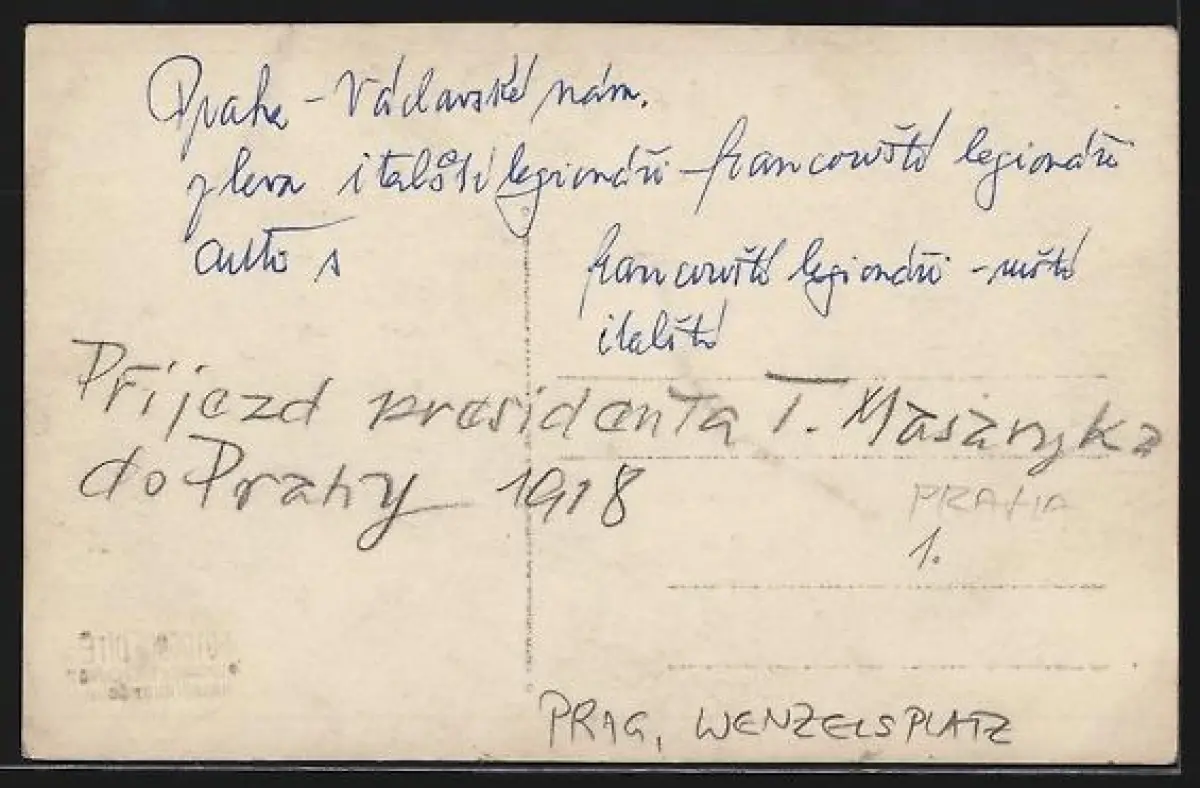 Praha - Václavské nám.
zleva italští legionáři - francouzští legionáři
auto s
francouzští legionáři - ruští
italští
Příjezd presidenta T. Masaryka
do Prahy 1918
PRAHA
1.
PRAG, WENZELSPLATZ